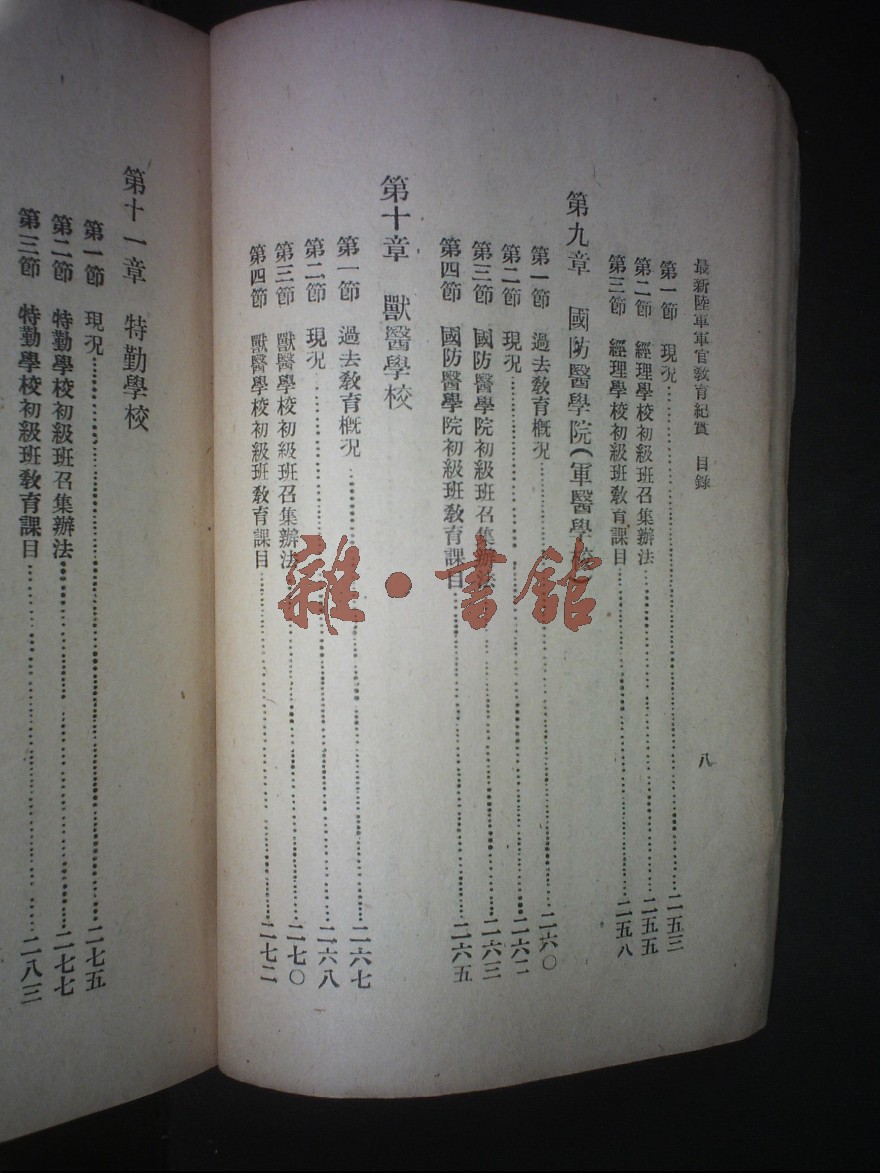 最新陸軍軍官敎育紀實　目錄
八
第一節　現況……二五三
第二節　經理學校初級班召集辦法……二五五
第三節　經理學校初級班敎育課目……二五八
第九章　國防醫學院(軍醫學校)
第一節　過去敎育槪況……二六〇
第二節　現況……二六二
第三節　國防醫學院初級班召集辦法……二六三
第四節　國防醫學院初級班敎育課目……二六五
第十章　獸醫學校
第一節　過去敎育槪況……二六七
第二節　現況……二六八
第三節　獸醫學校初級班召集辦法……二七〇
第四節　獸醫學校初級班敎育課目……二七二
第十一章　特勤學校
第一節　現況……二七五
第二節　特勤學校初級班召集辦法……二七七
第三節　特勤學校初級班敎育課目……二八三
雜·書館